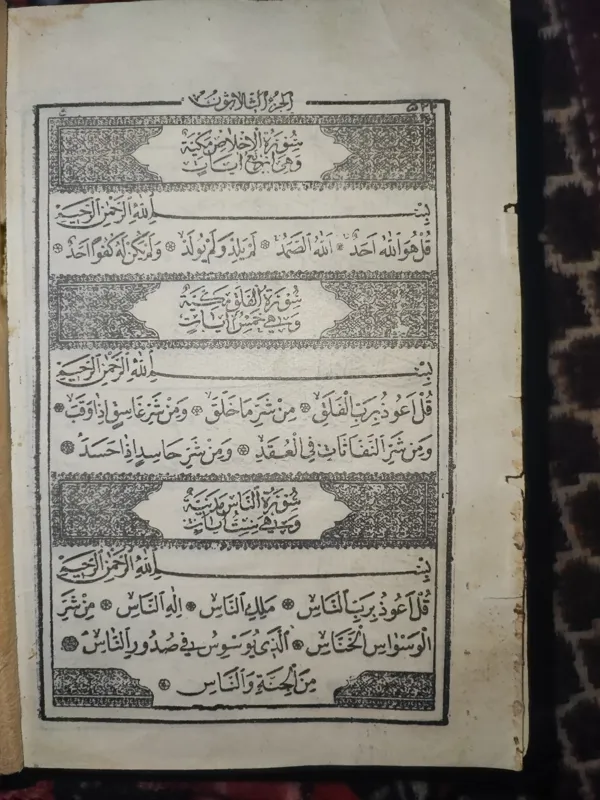 ٥٢٢
الجزء الثلاثون
سُورَةُ الْإِخْلَاصِ مَكِّيَّةٌ
وَهِيَ أَرْبَعُ آيَاتٍ
بِسْمِ اللهِ الرَّحْمٰنِ الرَّحِيمِ
قُلْ هُوَ اللهُ اَحَدٌ ۞ اَللهُ الصَّمَدُ ۞ لَمْ يَلِدْ وَلَمْ يُولَدْ ۞ وَلَمْ يَكُنْ لَهُ كُفُوًا اَحَدٌ ۞
سُورَةُ الْفَلَقِ مَكِّيَّةٌ
وَهِيَ خَمْسُ آيَاتٍ
بِسْمِ اللهِ الرَّحْمٰنِ الرَّحِيمِ
قُلْ اَعُوذُ بِرَبِّ الْفَلَقِ ۞ مِنْ شَرِّ مَا خَلَقَ ۞ وَمِنْ شَرِّ غَاسِقٍ اِذَا وَقَبَ ۞
وَمِنْ شَرِّ النَّفَّاثَاتِ فِي الْعُقَدِ ۞ وَمِنْ شَرِّ حَاسِدٍ اِذَا حَسَدَ ۞
سُورَةُ النَّاسِ مَدَنِيَّةٌ
وَهِيَ سِتُّ آيَاتٍ
بِسْمِ اللهِ الرَّحْمٰنِ الرَّحِيمِ
قُلْ اَعُوذُ بِرَبِّ النَّاسِ ۞ مَلِكِ النَّاسِ ۞ اِلٰهِ النَّاسِ ۞ مِنْ شَرِّ
الْوَسْوَاسِ الْخَنَّاسِ ۞ اَلَّذِي يُوَسْوِسُ فِي صُدُورِ النَّاسِ ۞
مِنَ الْجِنَّةِ وَالنَّاسِ ۞